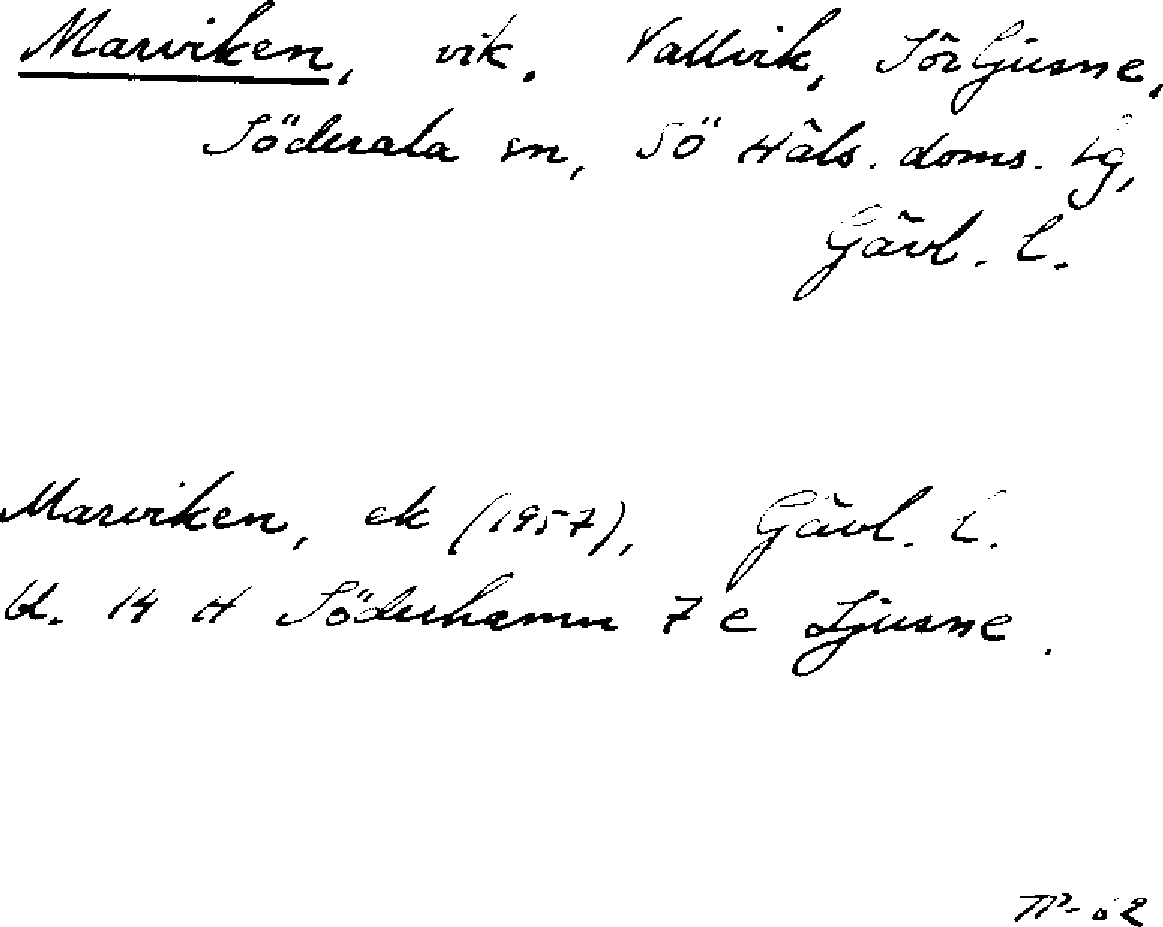 Marviken, vik. Vallvik, Sörljusne,
Söderala sn, SÖ Häls. doms. tg,
Gävl. l.
Marviken, ek (1957), Gävl. l.
bl. 14 H Söderhamn 7 e Ljusne.